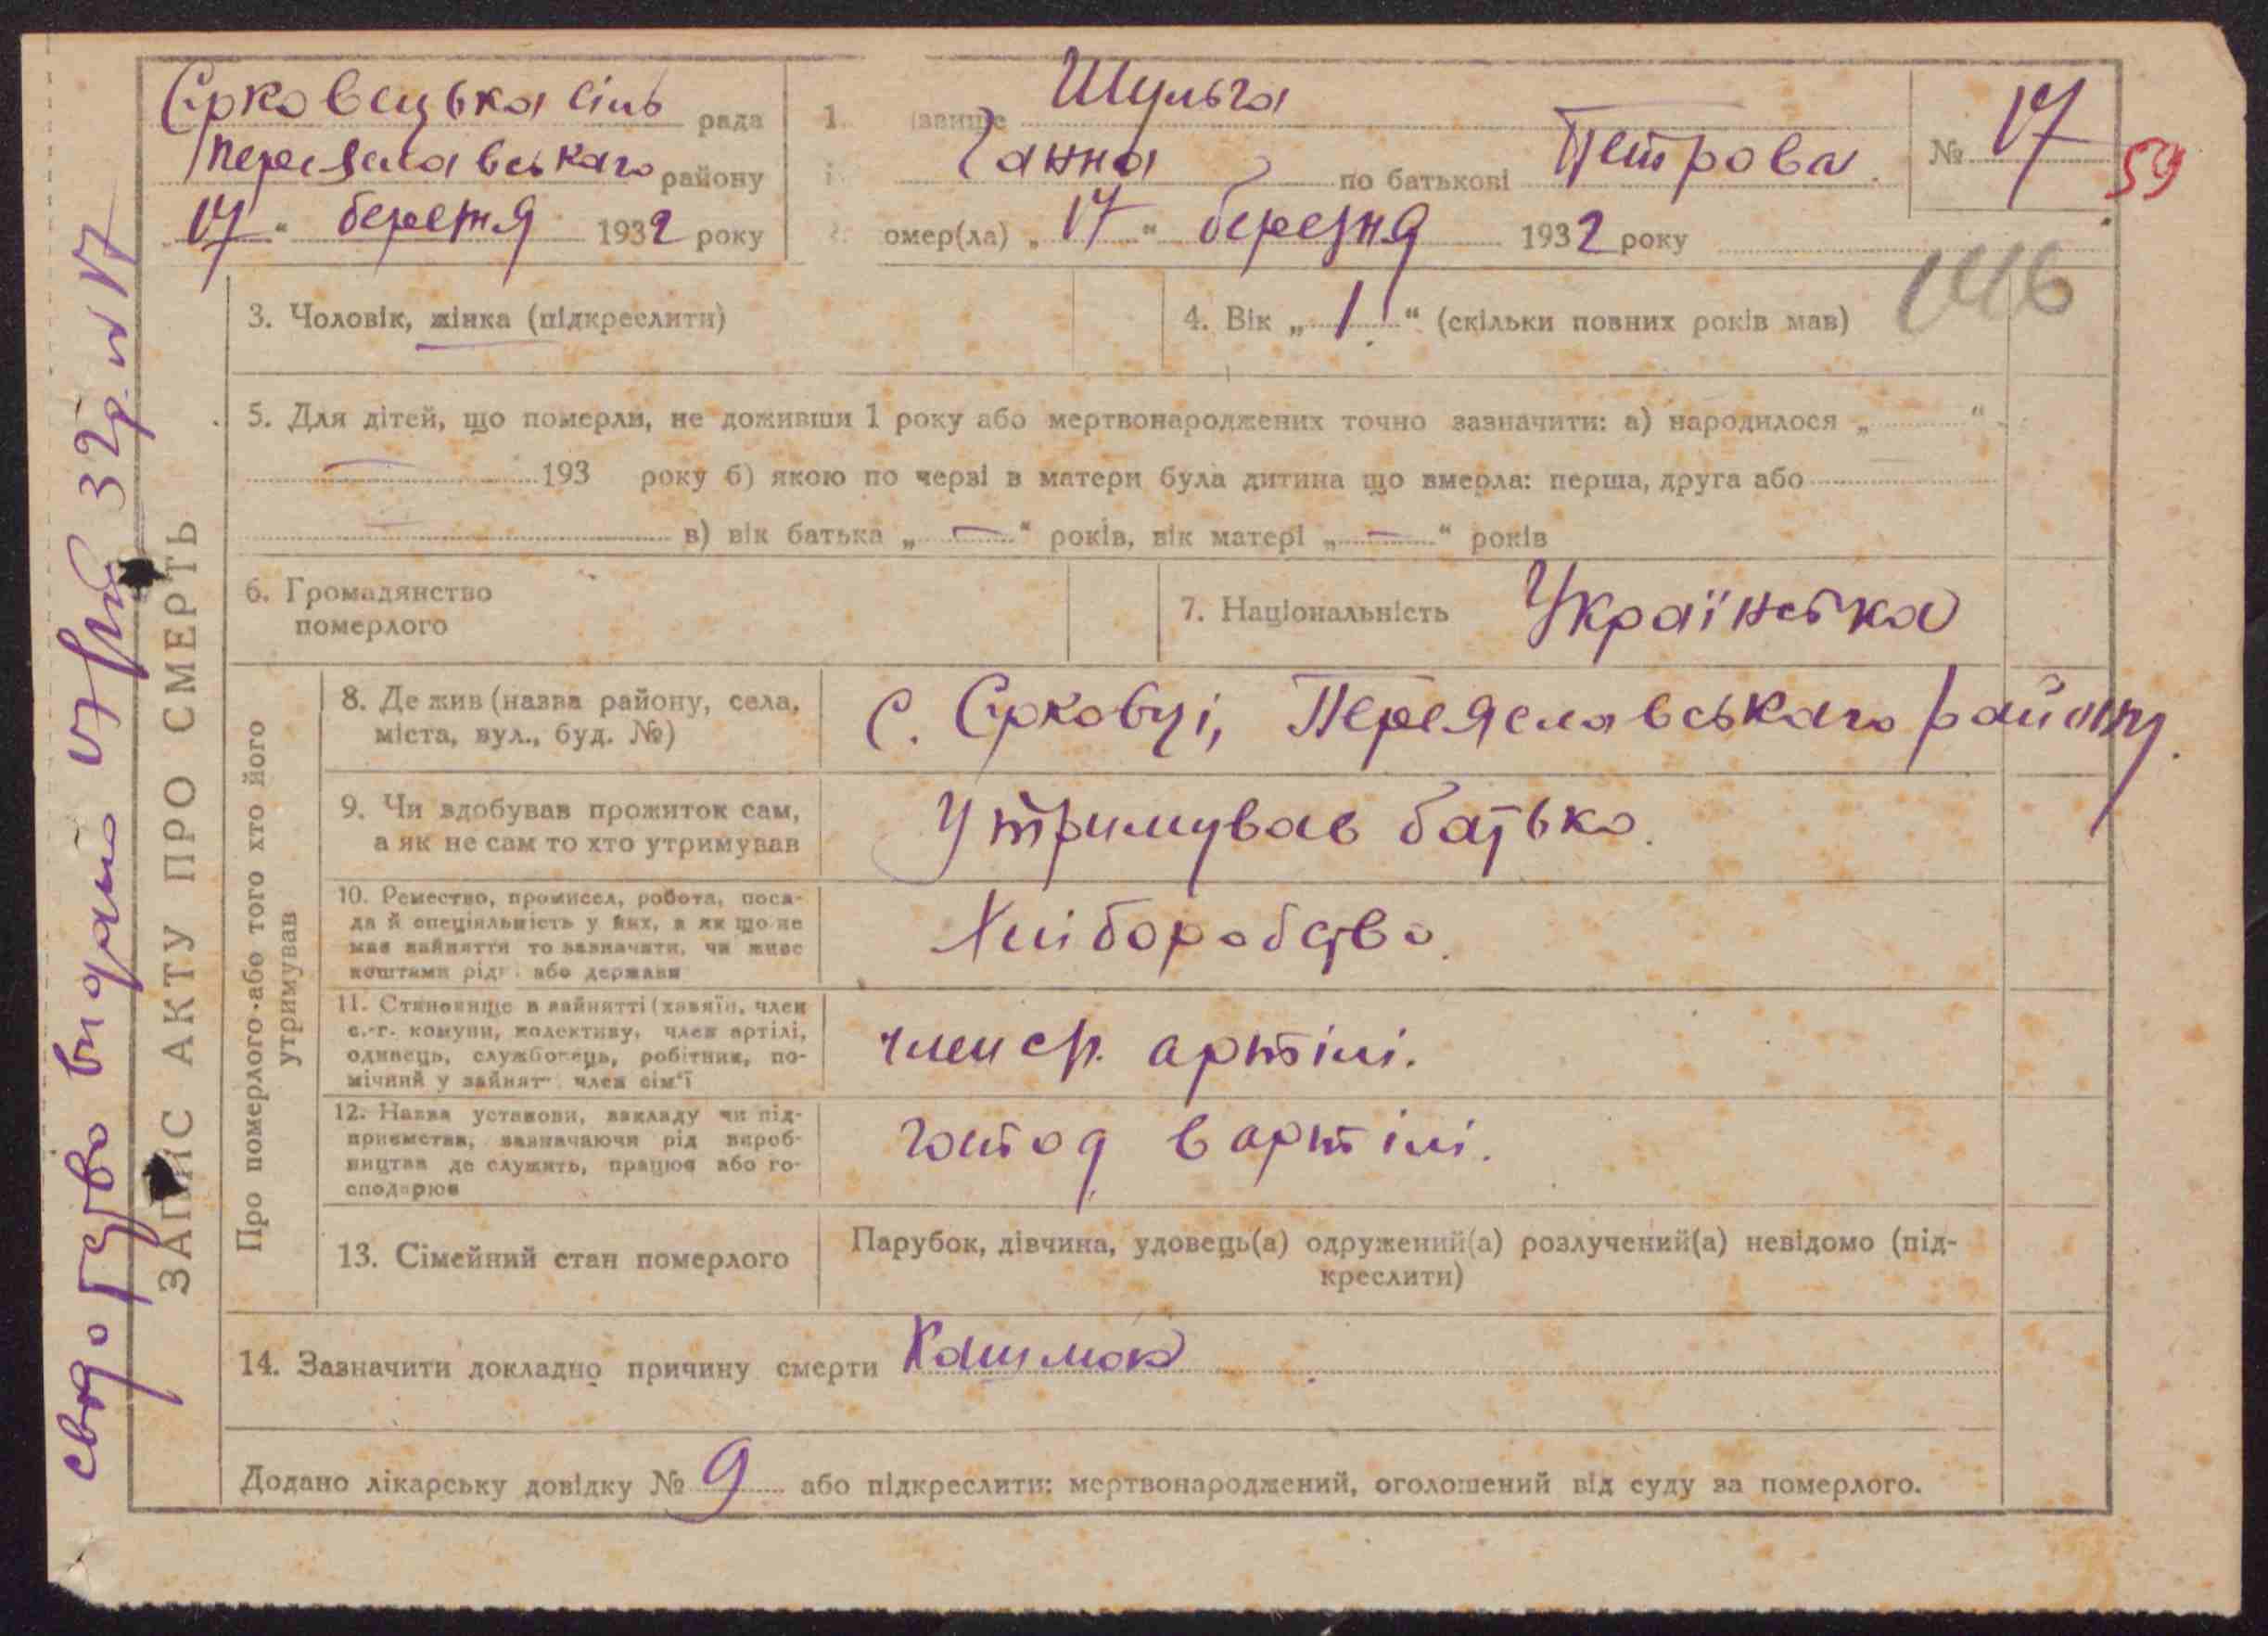 Єрковецька сіль рада
Переяславського району
17 " березня 1932 року
1. звище Шульга
Ганна по батькові Петрова.
омер(ла) „ 17 " березня 1932 року
№ 17
59
146
3. Чоловік, жінка (підкреслити)
4. Вік „ 1 " (скільки повних років мав)
5. Для дітей, що померли, не доживши 1 року або мертвонароджених точно зазначити: а) народилося „ "
193 року б) якою по черзі в матери була дитина що вмерла: перша, друга або
в) вік батька „ — " років, вік матері „ — " років
6. Громадянство
померлого
7. Національність Українська
8. Де жив (назва району, села,
міста, вул., буд. №)
с. Єрковці, Переяславського району.
9. Чи здобував прожиток сам,
а як не сам то хто утримував
Утримував батько.
10. Ремество, промисел, робота, поса-
да й спеціяльність у них, а як що не
мав зайняття то зазначити, чи живе
коштами рідн. або держави
Хліборобство.
11. Становище в зайнятті (хазяїн, член
с.-г. комуни, колективу, член артілі,
одинець, службовець, робітник, по-
мічний у зайнят. член сім'ї
член ср. артілі.
12. Назва установи, закладу чи під-
приємства, зазначаючи рід вироб-
ництва де служить, працює або го-
сподарює
в артілі.
13. Сімейний стан померлого
Парубок, дівчина, удовець(а) одружений(а) розлучений(а) невідомо (під-
креслити)
14. Зазначити докладно причину смерти Кашлюк
Додано лікарську довідку № 9 або підкреслити: мертвонароджений, оголошений від суду за померлого.
Про померлого або того хто його
утримував
ЗАПИС АКТУ ПРО СМЕРТЬ
свідоцтво видано 17 32р. № 17